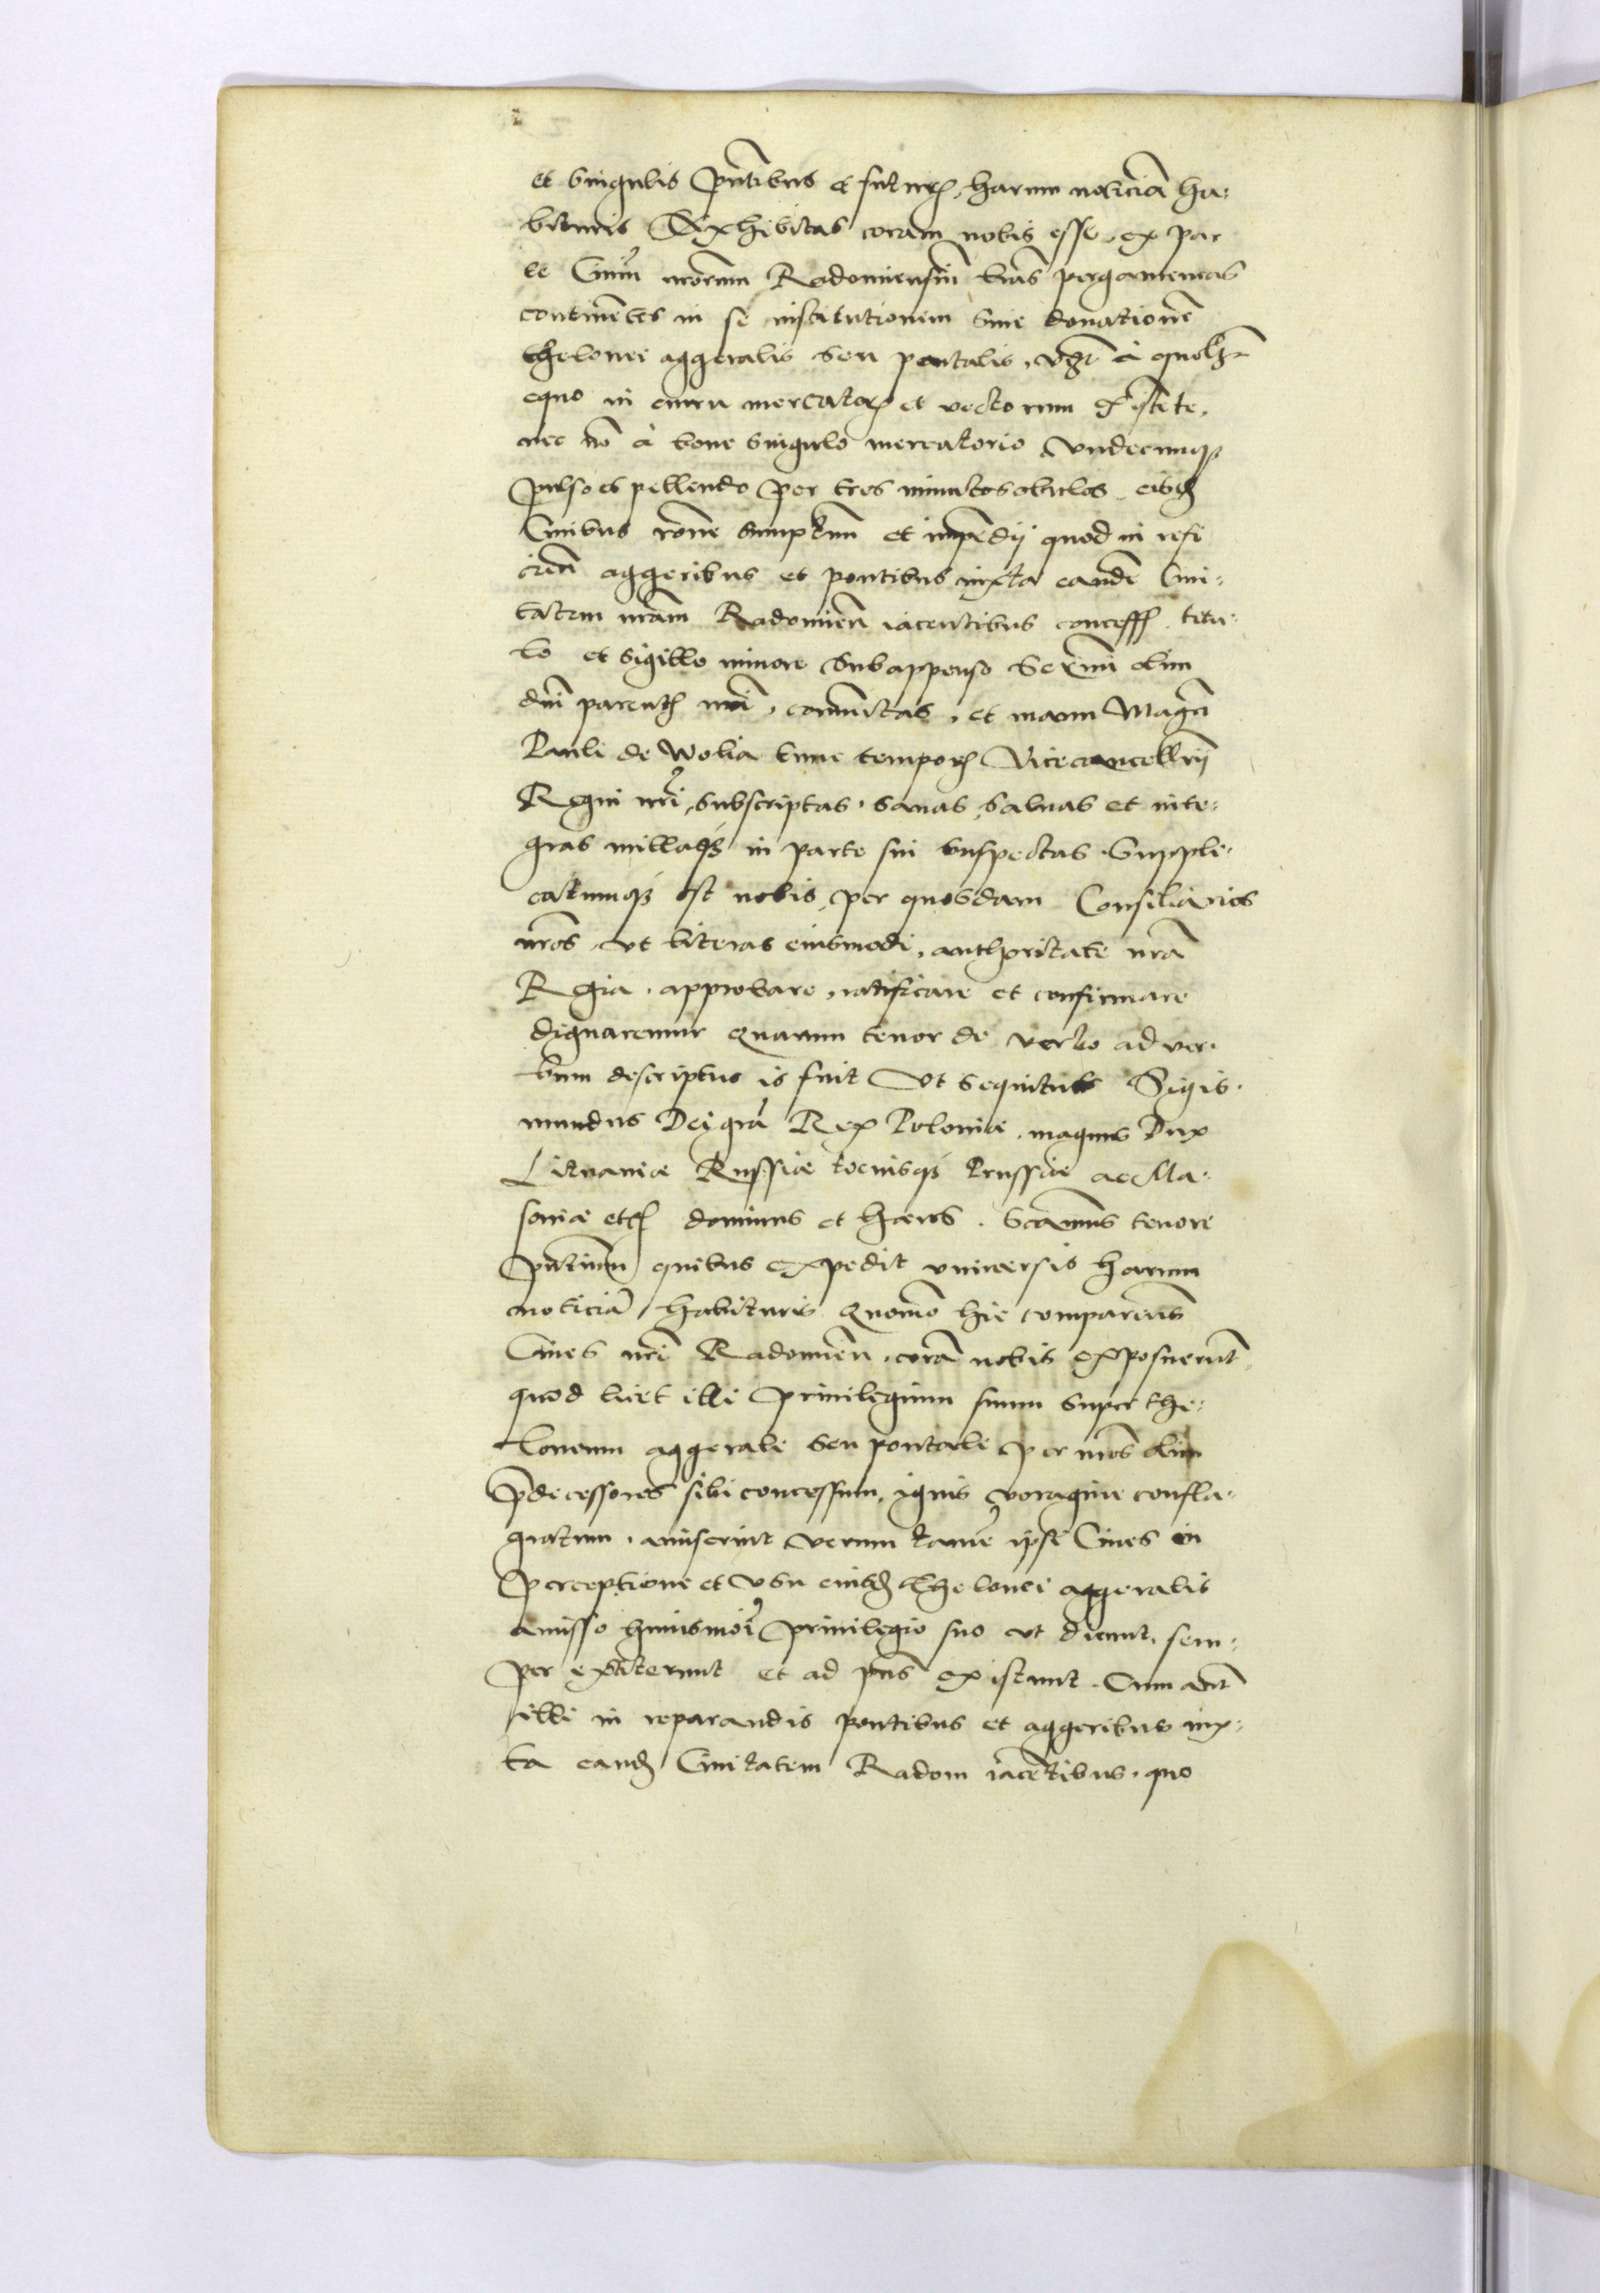 et singulis pūtibus et futuris, harum noticiā ha-
bituris Exhibitas coram nobis esse, ex par
te Ciuiū nrorum Radomiensiū lras pergameneas
continētes in se institutionem siue donationē
thelonei aggeralis seu pontalis, vȝt à quolȝ
equo in curru mercatorȝ et vectorum existēte,
nec nō à boue singulo mercatorio vndecunqȝ
pulso et pellendo per tres minutos obulos, eisdȝ
Ciuibus rōne sumptuum et impēdij quod in refi
ciēn aggeribus et pontibus iuxta eandē Ciui-
tatem nrām Radomień iacentibus concessȝ, titu-
lo et sigillo minore subappenso Serm̄i olim
dn̄i parentȝ nrī, com̄unitas, et manu Magn̄
Pauli de Wolia tunc temporȝ Vicecancellrij
Regni nri, subscriptas, sanas, saluas et inte-
gras nullaqȝ in parte sui suspectas. Supple-
catumqȝ est nobis, per quosdam Consiliarios
nros, vt literas eiusmodi, authoritate nrā
Regia, approbare, ratificare et confirmare
dignaremur Quarum tenor de verbo ad ver-
bum descriptus is fuit Vt sequitur Sigis-
mundus Dei grā Rex Poloniæ, magnus Dux
Lituaniæ Russiæ tociusqȝ Prussiæ ac Ma-
souiæ etcȝ dominus et hæres. Significamus tenore
pn̄tium quibus expedit vniuersis harum
noticiā habituris Quomō hic comparen̄s
Ciues nri Radomień, corā nobis exposuerūt,
quod licet illi priuilegium suum super the-
loneum aggerale seu pontale per nros olim
p̄decessores sibi concessum, ignis voragine confla-
gratum, amiserint verum tamē ipsi Ciues in
perceptione et vsu eiusdȝ thelonei aggeralis
amisso huiusmōi priuilegio suo vt dicunt, sem-
per extiterunt et ad p̄ns existunt. Cum aūt
illi in reparandis pontibus et aggeribus iux-
ta eandȝ Ciuitatem Radom iacētibus, quo